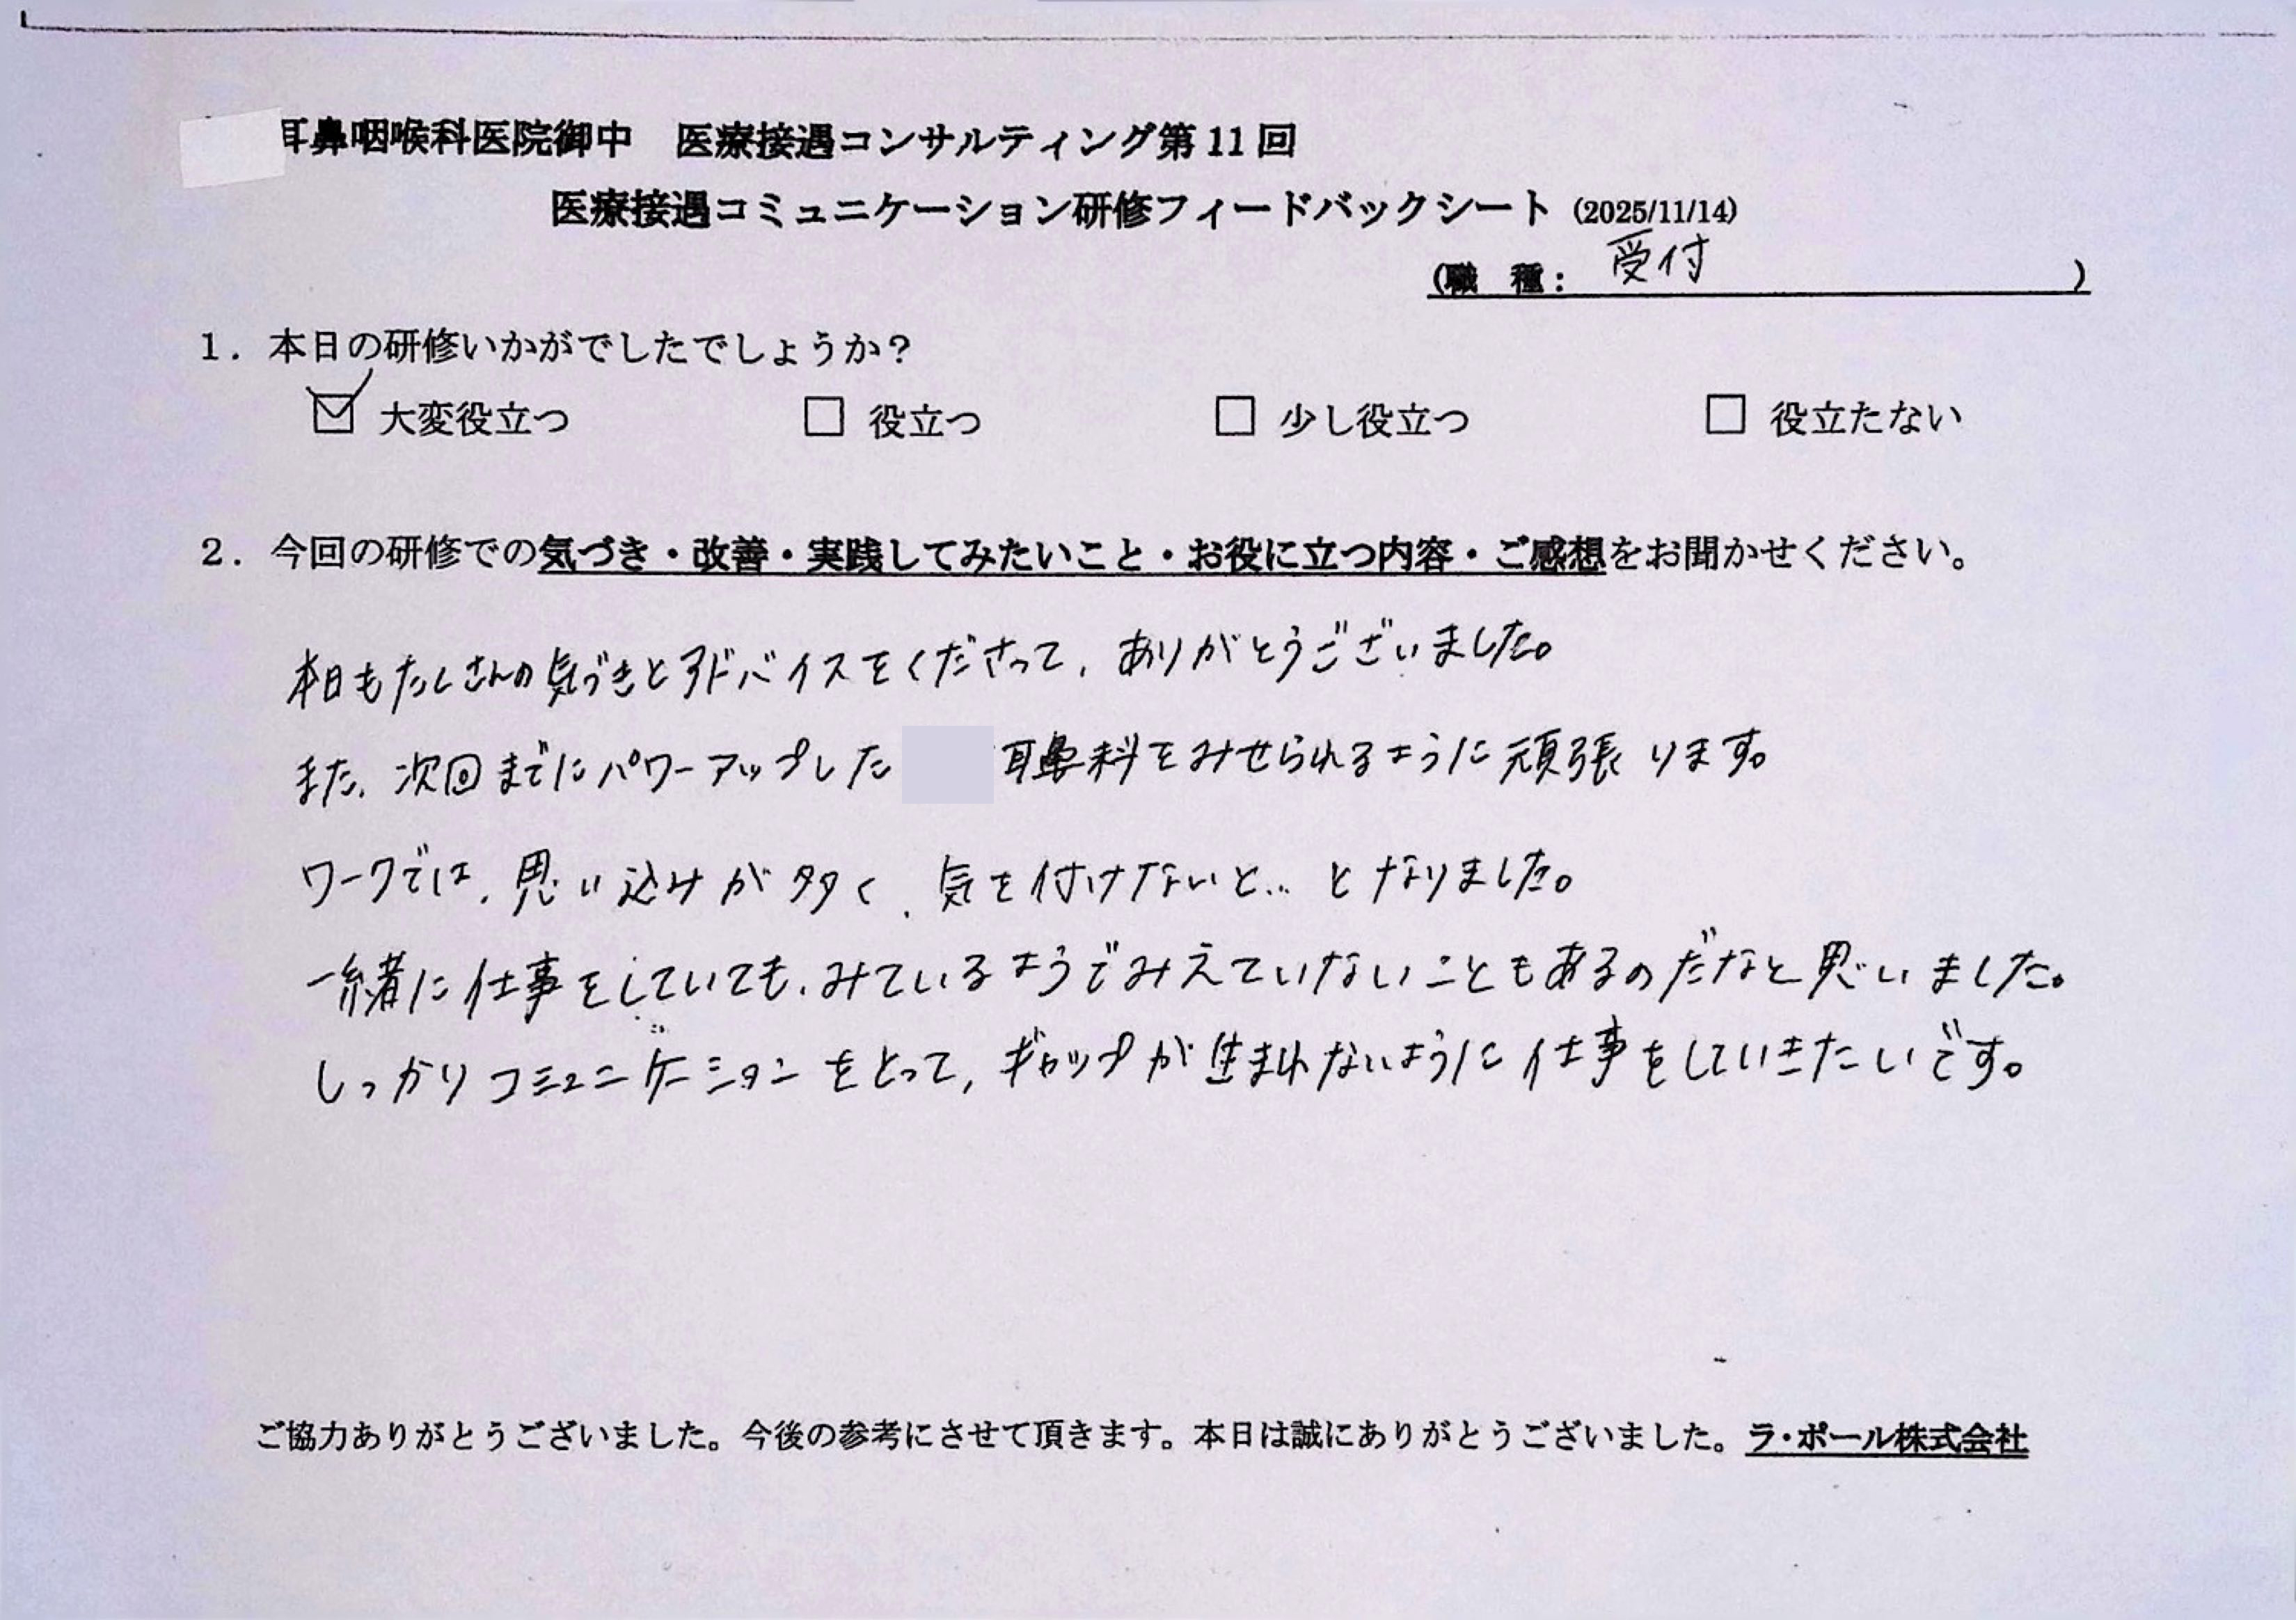 耳鼻咽喉科医院御中　医療接遇コンサルティング第11回
医療接遇コミュニケーション研修フィードバックシート (2025/11/14)
(職　種： 受付 )
１．本日の研修いかがでしたでしょうか？
☑ 大変役立つ　□ 役立つ　□ 少し役立つ　□ 役立たない
２．今回の研修での気づき・改善・実践してみたいこと・お役に立つ内容・ご感想をお聞かせください。
本日もたくさんの気づきとアドバイスをくださって、ありがとうございました。
また、次回までにパワーアップした 耳鼻科をみせられるように頑張ります。
ワークでは、思い込みが多く、気を付けないと… となりました。
一緒に仕事をしていても、みているようでみえていないこともあるのだなと思いました。
しっかりコミュニケーションをとって、ギャップが生まれないように仕事をしていきたいです。
ご協力ありがとうございました。今後の参考にさせて頂きます。本日は誠にありがとうございました。ラ・ポール株式会社